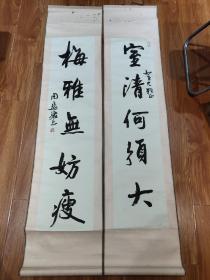 室清何須大
梅雅無妨瘦